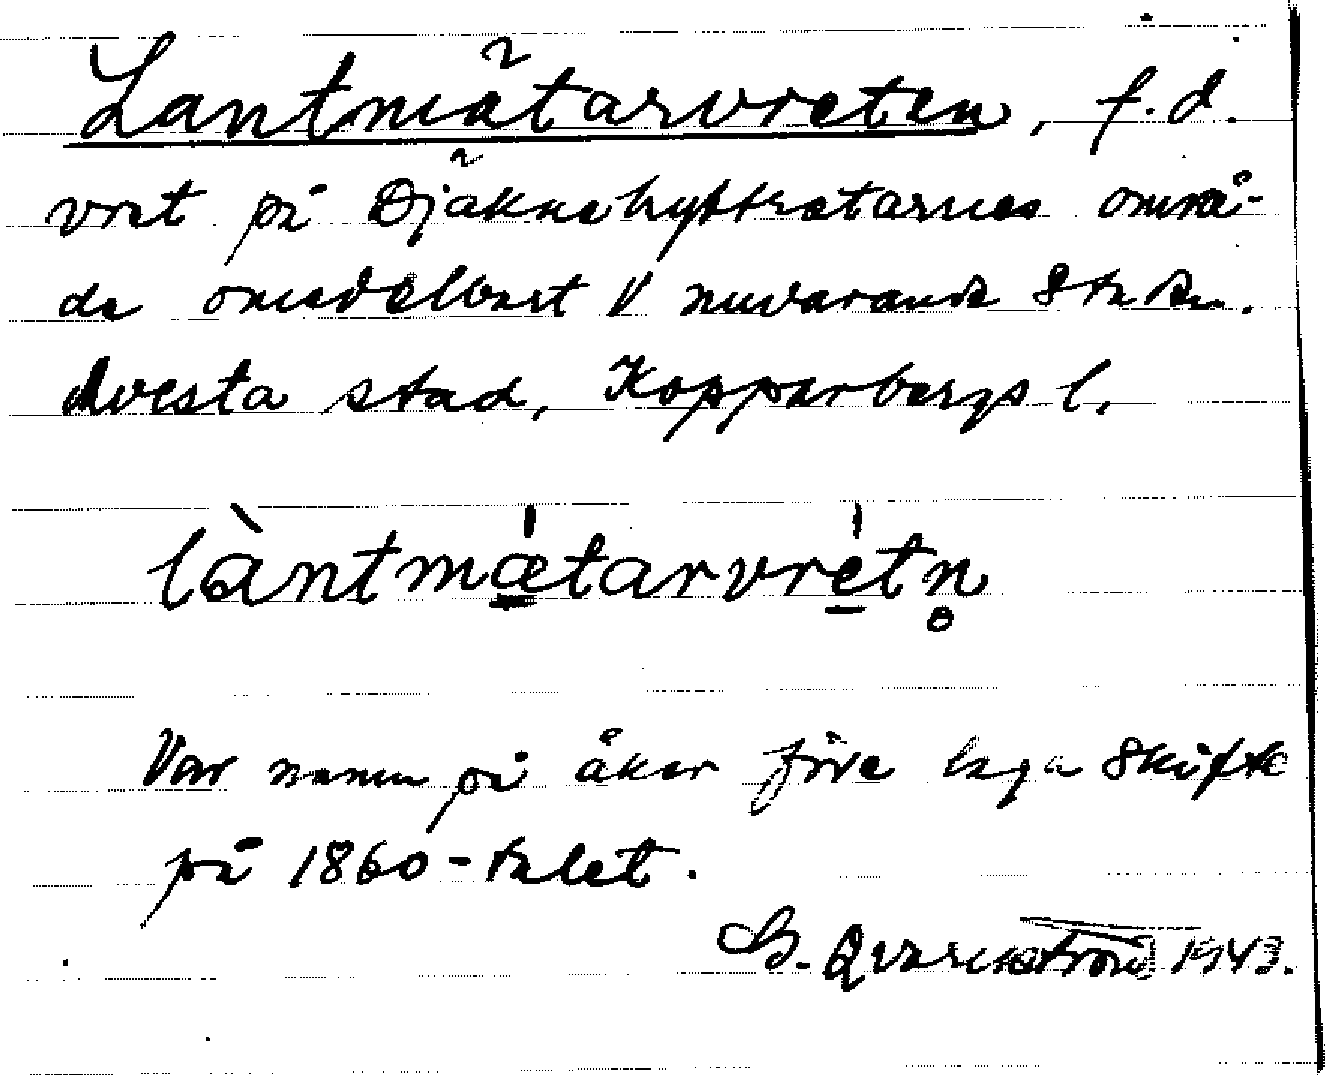 Lantmätarvreten, f.d.
vret på Djäknehyttretarnes områ-
de omedelbart V nuvarande
Avesta stad, Kopparbergs l.
làntmætarvretn̥
Var namn på åker före laga skifte
på 1860-talet.
G. Qvarnström 1943.